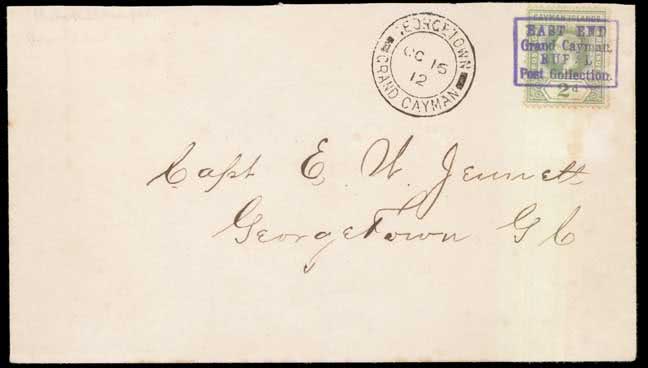 GEORGETOWN
OC 15
12
GRAND CAYMAN
CAYMAN ISLANDS
EAST END
Grand Cayman.
RURAL
Post Collection.
2d
Capt E. W. Jennett
GeorgeTown G C